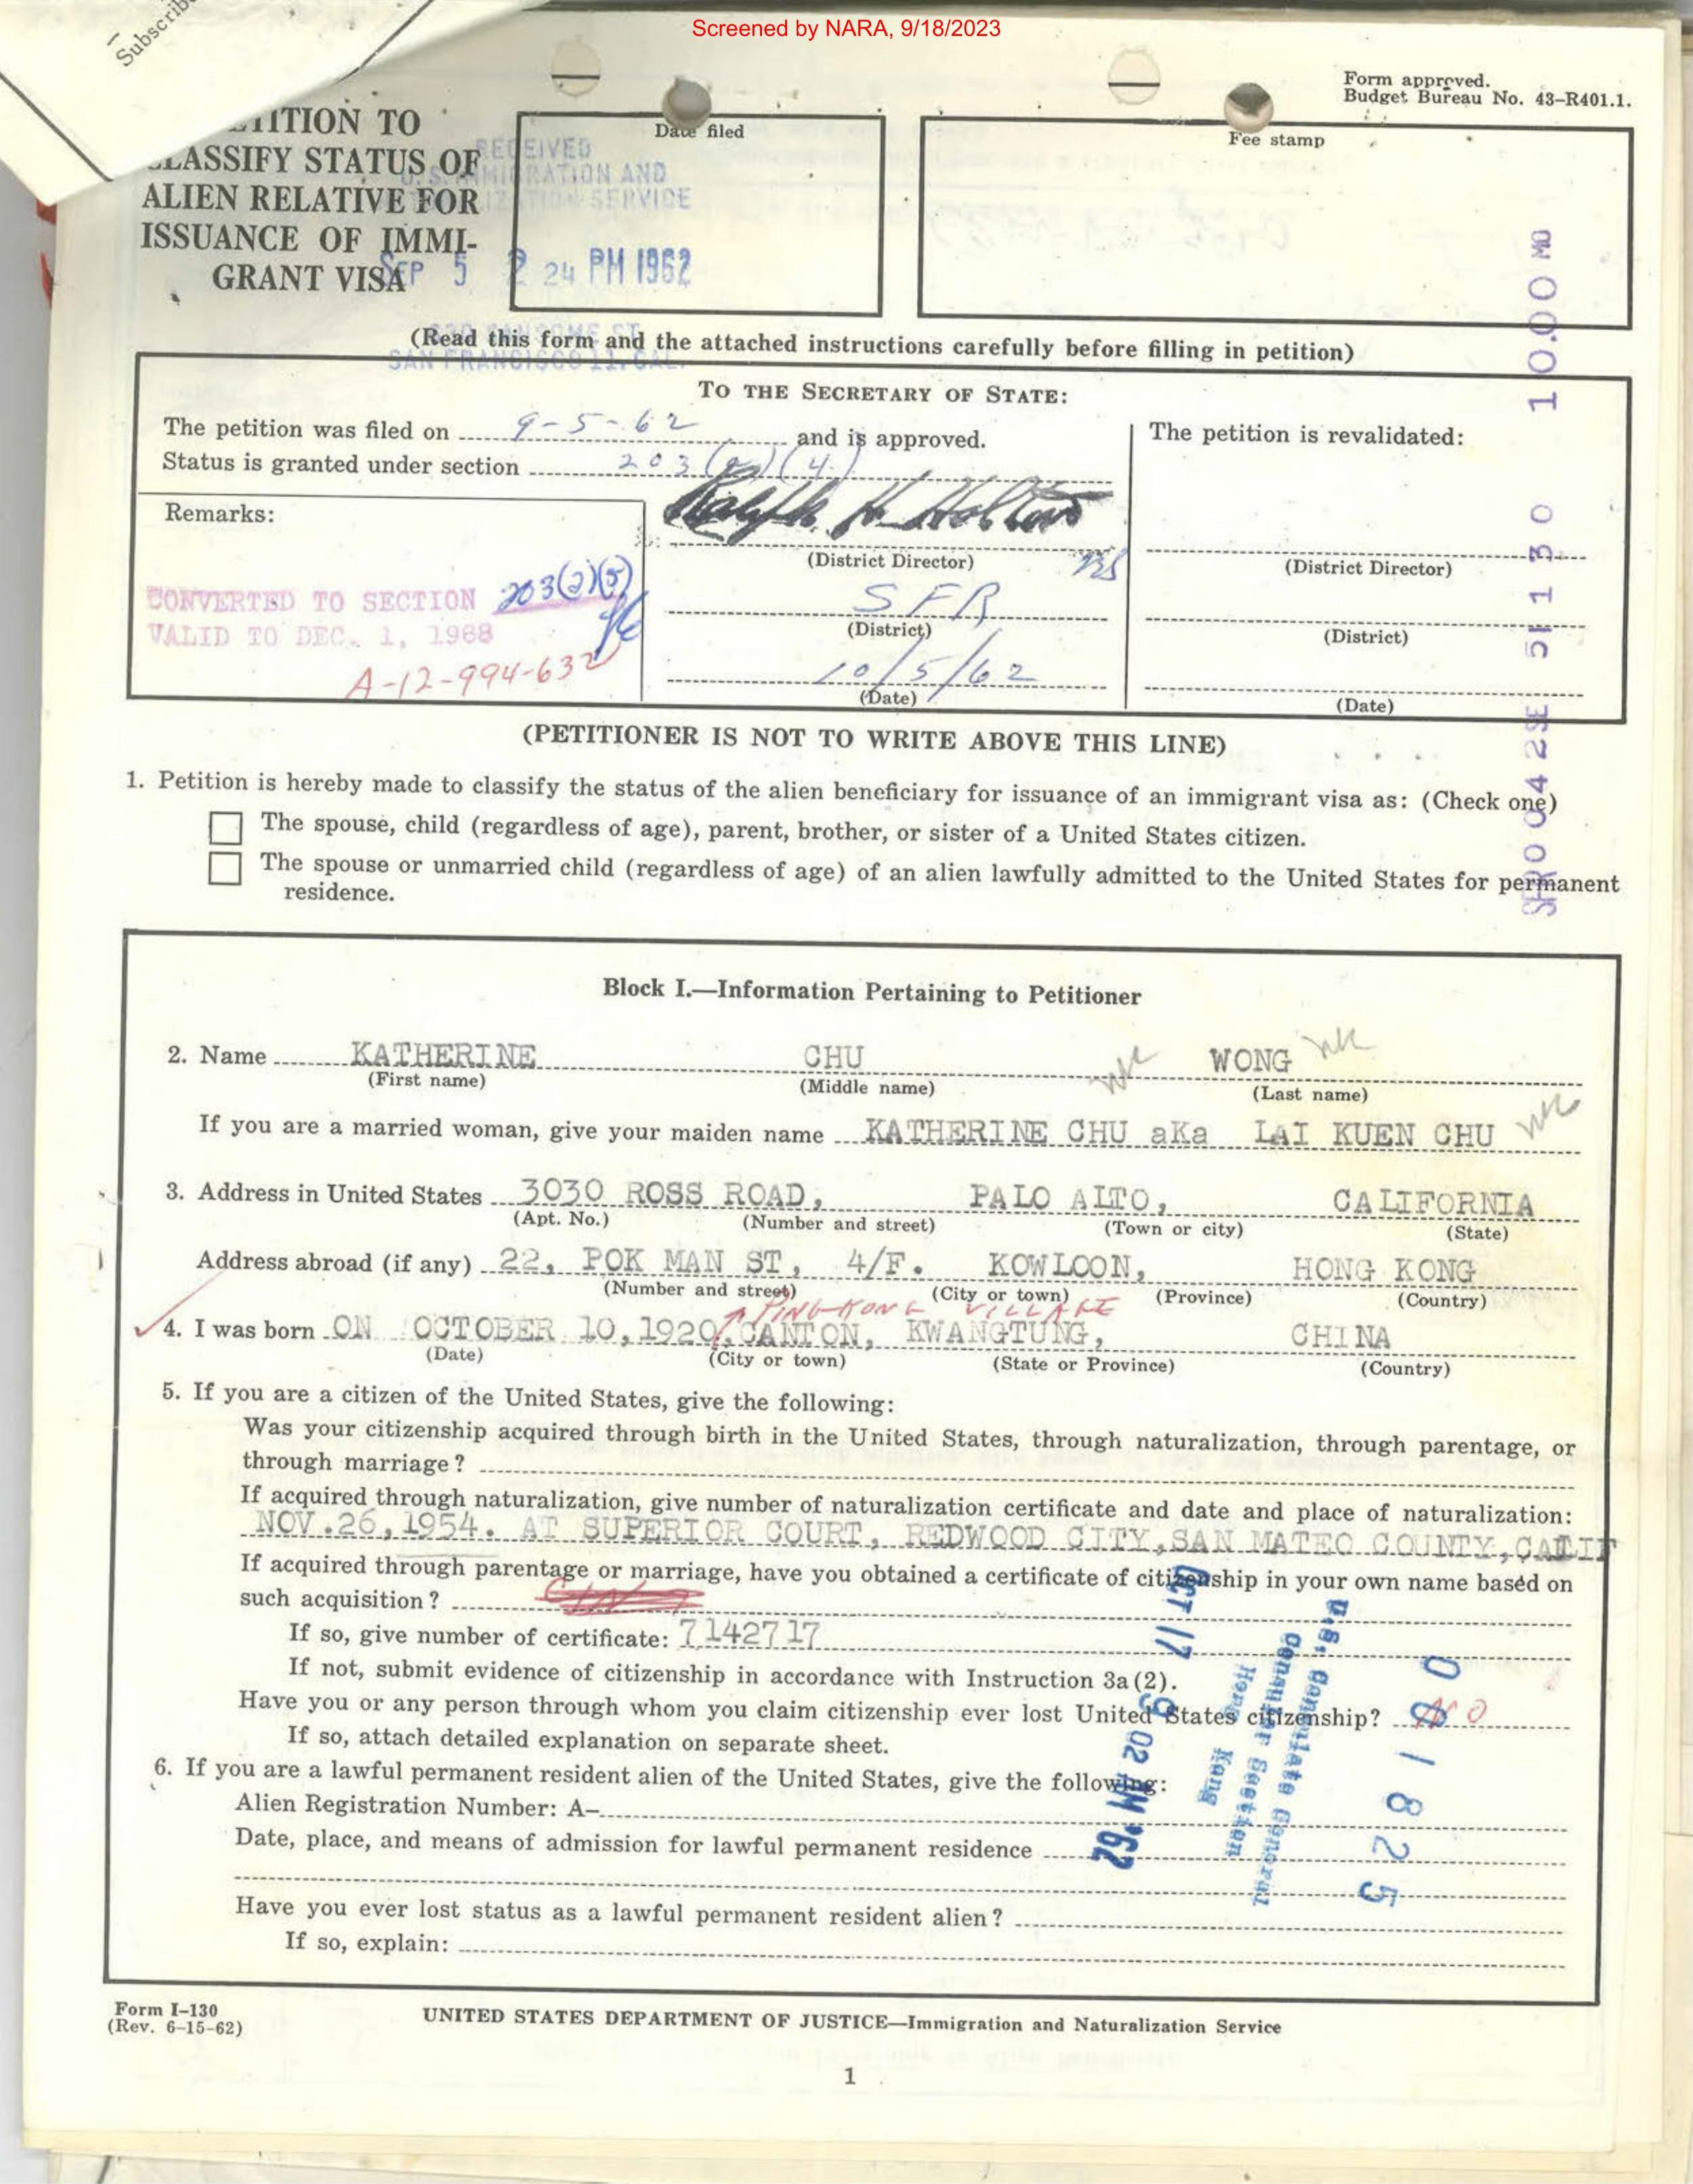 Screened by NARA, 9/18/2023
Subscrib
Form approved.
Budget Bureau No. 43-R401.1.
ITION TO
LASSIFY STATUS OF
ALIEN RELATIVE FOR
ISSUANCE OF IMMI-
GRANT VISA
Date filed
RECEIVED
U.S. IMMIGRATION AND
IZATION SERVICE
SEP 5 2 24 PM 1962
630 SANSOME ST
SAN FRANCISCO 11, CAL.
Fee stamp
10.00 MO
(Read this form and the attached instructions carefully before filling in petition)
TO THE SECRETARY OF STATE:
The petition was filed on 9-5-62 and is approved.
Status is granted under section 203(a)(4)
The petition is revalidated:
Remarks:
(District Director)
(District Director)
CONVERTED TO SECTION 203(a)(5)
VALID TO DEC. 1, 1968
A-12-994-632
SFR
(District)
(District)
10/5/62
(Date)
(Date)
(PETITIONER IS NOT TO WRITE ABOVE THIS LINE)
1. Petition is hereby made to classify the status of the alien beneficiary for issuance of an immigrant visa as: (Check one)
The spouse, child (regardless of age), parent, brother, or sister of a United States citizen.
The spouse or unmarried child (regardless of age) of an alien lawfully admitted to the United States for permanent
residence.
Block I.—Information Pertaining to Petitioner
2. Name KATHERINE CHU WONG
(First name) (Middle name) (Last name)
If you are a married woman, give your maiden name KATHERINE CHU aKa LAI KUEN CHU
3. Address in United States 3030 ROSS ROAD, PALO ALTO, CALIFORNIA
(Apt. No.) (Number and street) (Town or city) (State)
Address abroad (if any) 22, POK MAN ST, 4/F. KOWLOON, HONG KONG
(Number and street) (City or town) (Province) (Country)
PING KONG VILLAGE
4. I was born ON OCTOBER 10, 1920, CANTON, KWANGTUNG, CHINA
(Date) (City or town) (State or Province) (Country)
5. If you are a citizen of the United States, give the following:
Was your citizenship acquired through birth in the United States, through naturalization, through parentage, or
through marriage?
If acquired through naturalization, give number of naturalization certificate and date and place of naturalization:
NOV.26,1954. AT SUPERIOR COURT, REDWOOD CITY,SAN MATEO COUNTY,CALIF
If acquired through parentage or marriage, have you obtained a certificate of citizenship in your own name based on
such acquisition?
If so, give number of certificate: 7142717
If not, submit evidence of citizenship in accordance with Instruction 3a(2).
Have you or any person through whom you claim citizenship ever lost United States citizenship? NO
If so, attach detailed explanation on separate sheet.
6. If you are a lawful permanent resident alien of the United States, give the following:
Alien Registration Number: A–
Date, place, and means of admission for lawful permanent residence
Have you ever lost status as a lawful permanent resident alien?
If so, explain:
OCT 17 9 02 AM '62
U.S. Consulate General
Consular Section
Hong Kong
001825
Form I-130
(Rev. 6-15-62)
UNITED STATES DEPARTMENT OF JUSTICE—Immigration and Naturalization Service
1